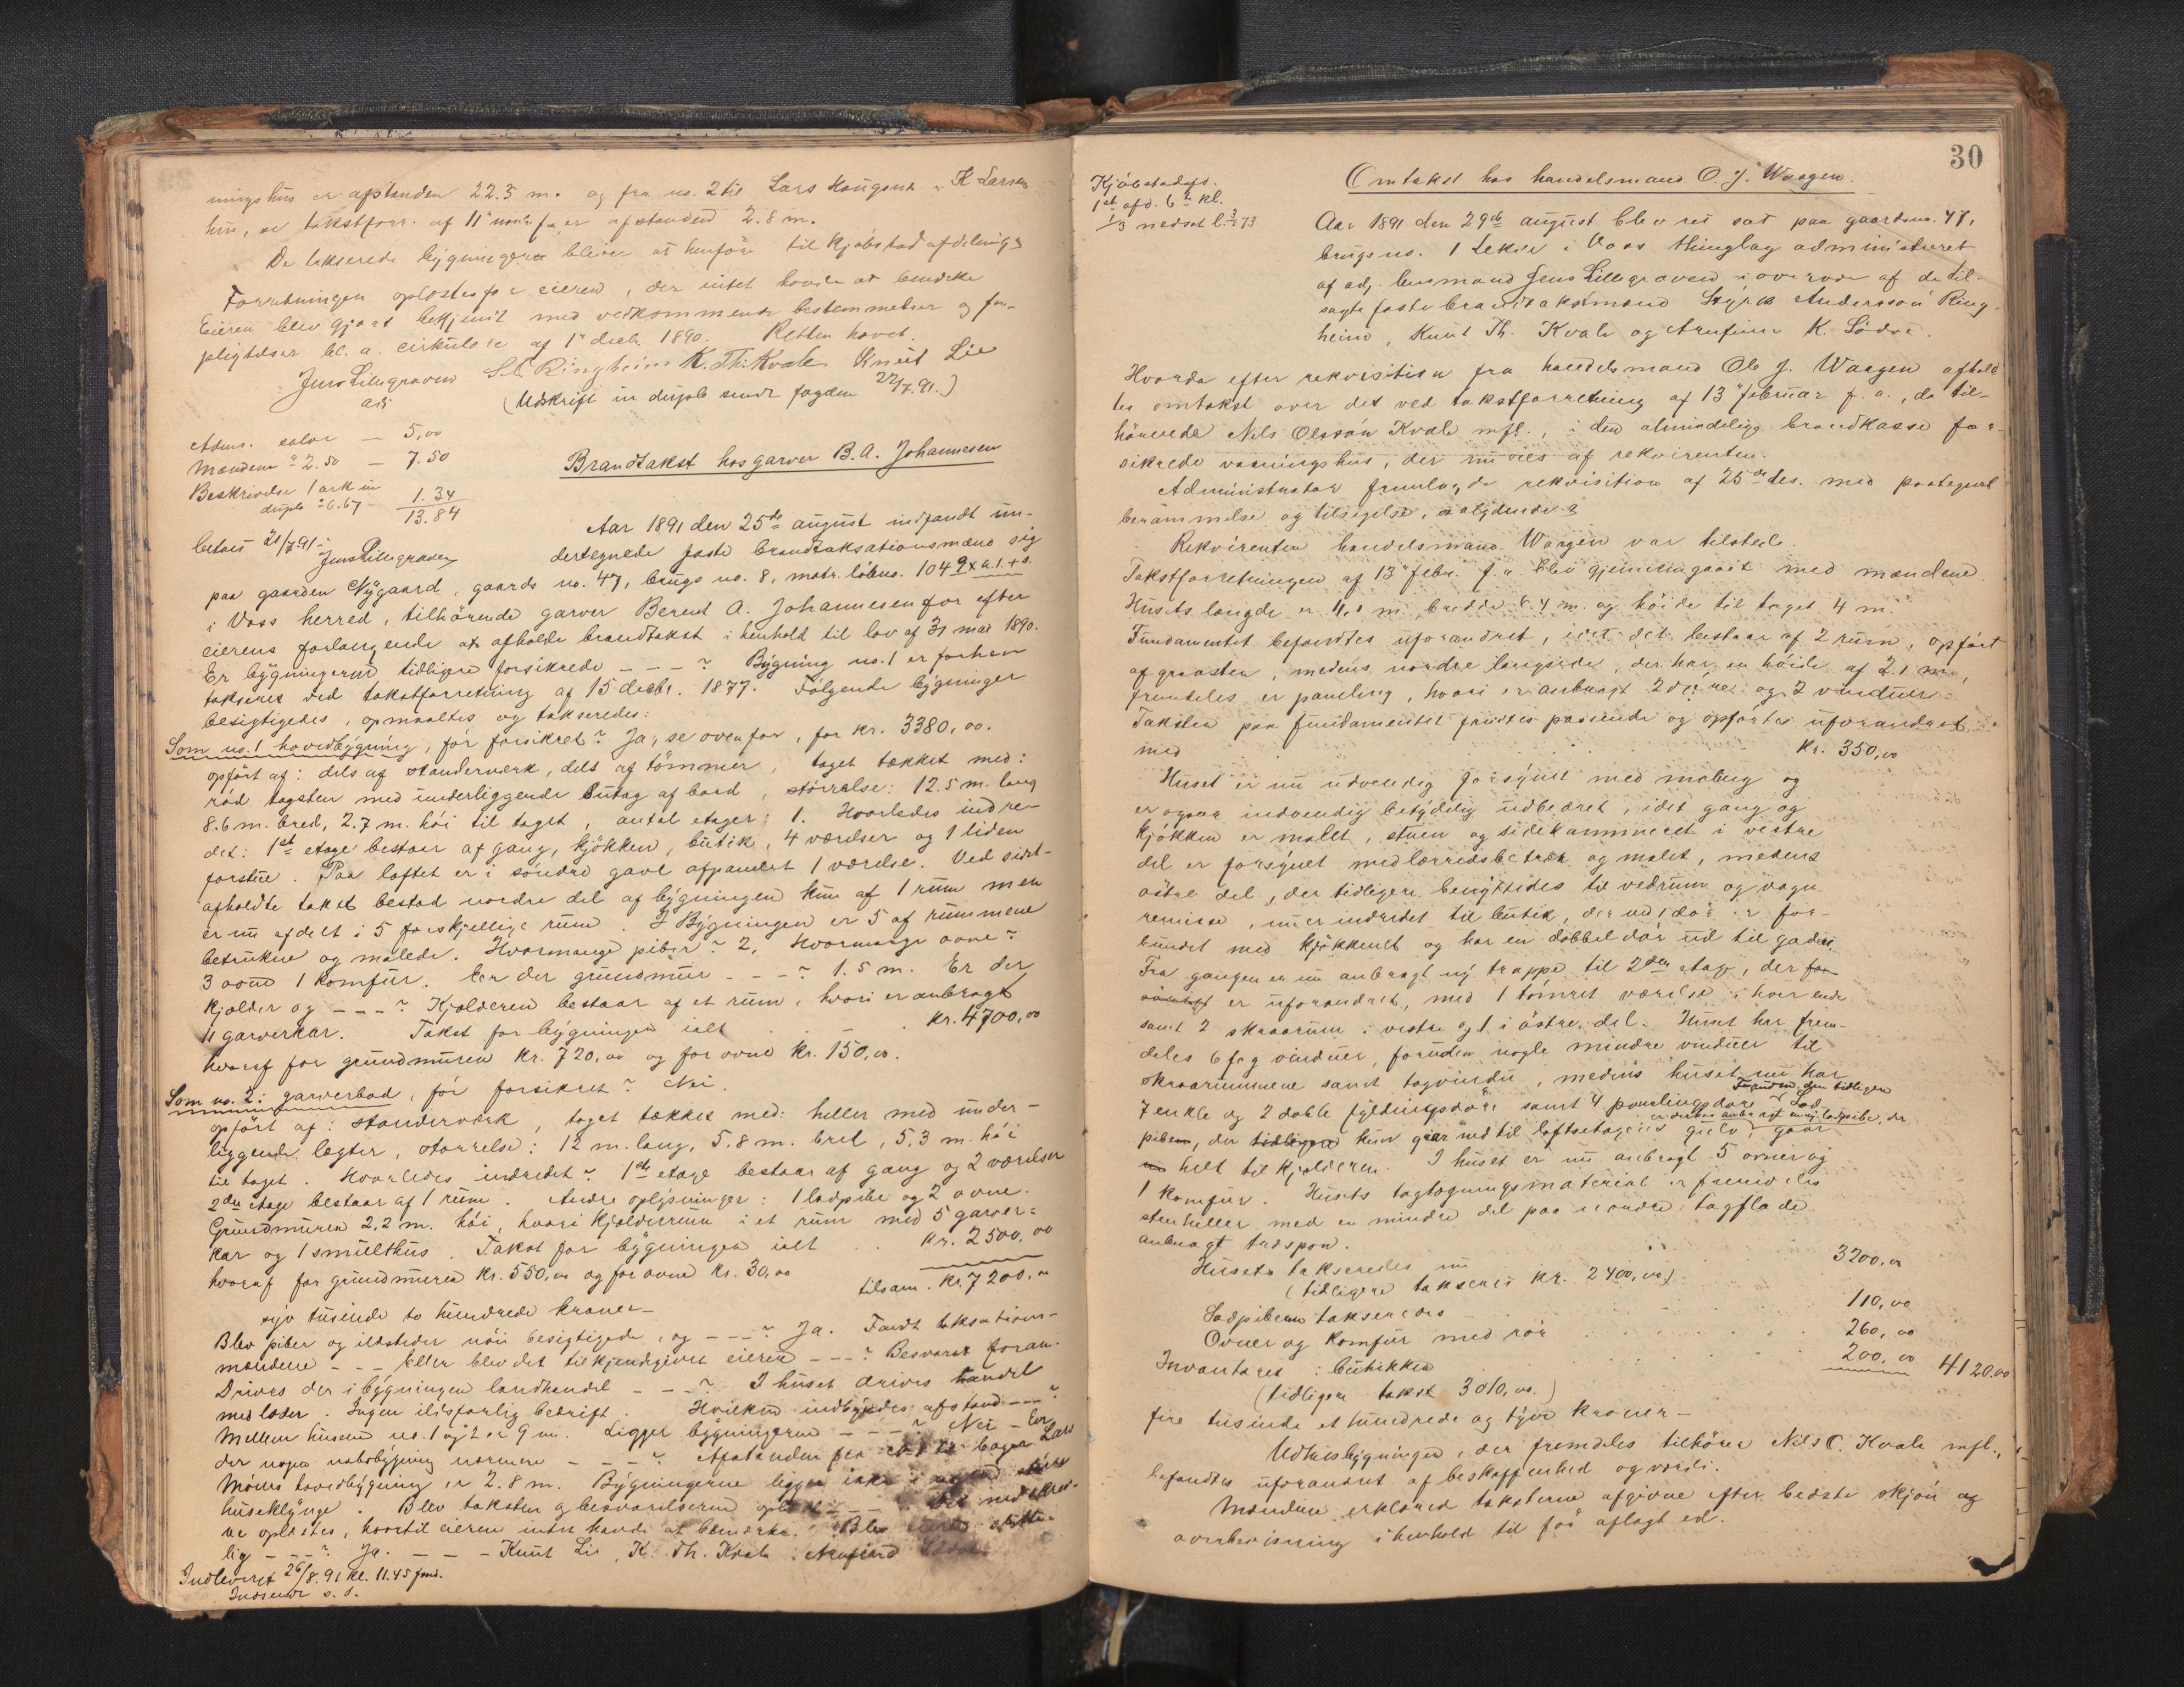 ningshus er afstanden 22.3 m. og fra no. 2 til Lars Haugens
hus, se takstforr. af 11te f. a. er afstanden 2.8 m.
De takserede bygninger blive at henføre til kjøbstadafdelings
Forretningen oplæstes for eieren, der intet havde at bemærke
Eieren blev gjort bekjendt med vedkommende bestemmelser og for-
pligtelser bl. a. cirkulære af 1te decb. 1890. Retten hævet.
Jens Lillegraven S. A. Ringheim K. Th. Kvale Knut Lie
adj
(Udskrift in duplo sendt fogden 22/7. 91.)
Adms. salær — 5,00
Mændene à 2.50 — 7.50
Beskrivelse 1 ark in
duplo à 0.67 — 1.34
13.84
betalt 21/7 91
Jens Lillegraven
Brandtakst hos garver B. A. Johannesen
Aar 1891 den 25de august indfandt un-
dertegnede faste brandtaksationsmænd sig
paa gaarden Nygaard, gaards no. 47, brugs no. 8, matr. løbno. 104
i Voss herred, tilhørende garver Berent A. Johannesen for efter
eierens forlangende at afholde brandtakst i henhold til lov af 31 mai 1890.
Er bygningerne tidligere forsikrede - - - ? Bygning no. 1 er forhen
takseret ved takstforretning af 15 decbr. 1877. Følgende bygninger
besigtigedes, opmaaltes og takseredes:
Som no. 1 hovedbygning, før forsikret? Ja, se ovenfor, for kr. 3380,00.
opført af: dels af standerværk, dels af tømmer, taget tækket med:
rød tagsten med underliggende sutag af bord, størrelse: 12.5 m. lang
8.6 m. bred, 2.7 m. høi til taget, antal etager: 1. Hvorledes indre-
det: 1ste etage bestaar af gang, kjøkken, butik, 4 værelser og 1 liden
forstue. Paa loftet er i søndre gavl afpanelet 1 værelse. Ved sidst-
afholdte takst bestod nordre del af bygningen kun af 1 rum men
er nu afdelt i 5 forskjellige rum. I Bygningen er 5 af rummene
betrukne og malede. Hvormange piber? 2, Hvormange ovne?
3 ovne 1 komfur. Er der grundmur - - - ? 1.5 m. Er der
kjelder og - - - ? Kjelderen bestaar af et rum, hvori er anbragt
11 garverkar. Takst for bygningen ialt . . . kr. 4700,00
hvoraf for grundmuren kr. 720,00 og for ovne kr. 150,00.
Som no. 2: garverbod, før forsikret? Nei.
opført af: standerværk, taget tækket med: heller med under-
liggende lægter, størrelse: 12 m. lang, 5.8 m. bred, 5.3 m. høi
til taget. Hvorledes indredet? 1ste etage bestaar af gang og 2 værelser
2den etage bestaar af 1 rum. Andre oplysninger: 1 ladpibe og 2 ovne.
Grundmuren 2,2 m. høi, hvori kjelderrum i et rum med 5 garver-
kar og 1 smulthus. Takst for bygningen ialt . . kr. 2500,00
hvoraf for grundmuren kr. 550,00 og for ovne kr. 30,00
tilsam. kr. 7200,00
syv tusinde to hundrede kroner —
Blev piber og ildsteder nøie besigtigede, og - - - ? Ja. Fandt taksations-
mændene - - - Eller blev det tilkjendegivet eieren - - - ? Besvaret foran.
Drives der i bygningen landhandel - - - ? I huset drives handel
med læder. Ingen ildsfarlig bedrift Hvilken indbyrdes afstand - - - ?
Mellem husene no. 1 og 2 er 9 m. Ligger bygningerne - - - ? Nei - Er
der nogen nabobygning nærmere - - - ? Afstanden fra no. 1 til bager Lars
Møens hovedbygning er 2.8 m. Bygningerne ligger ikke i
huseklynge. Blev taksten og besvarelserne
ne oplæstes, hvortil eieren intet havde at bemærke. Blev
lig - - - ? Ja. - - - Knut Lie K. Th. Kvale Arnfind
Indleveret 26/8. 91 kl. 11.45 fmd.
Indsendt s. d.
30
Kjøbstadafd.
1ste afd. 6te kl.
1/3 nedsat
Omtakst hos handelsmand O. J. Waagen.
Aar 1891 den 29de august blev ret sat paa gaardsno. 47,
brugsno. 1 Lekve i Voss thinglag administreret
af adj. lensmand Jens Lillegraven i overvær af de til-
sagte faste brandtakstmænd Styrk Andersson Ring-
heim, Knut Th. Kvale og Arnfinn K. Lødve.
Hvorda efter rekvisition fra handelsmand Ole J. Waagen afhold-
tes omtakst over det ved takstforretning af 13de februar f. a., da til-
hørende Nils Olsson Kvale mfl., i den almindelige brandkasse for-
sikrede vaaningshus, der nu eies af rekvirenten.
Administrator fremlagde rekvisition af 25de ds. med paategnet
berammelse og tilsigelse, saalydende:
Rekvirenten handelsmand Waagen var tilstede.
Takstforretningen af 13de febr. f. a. blev gjennemgaaet med mændene.
Husets længde er 11,1 m. bredde 6.4 m. og høide til taget 4 m.
Fundamentet befandtes uforandret, idet det bestaar af 2 rum, opført
af graasten, medens nordre langside, der har en høide af 2.1 m.,
fremdeles er paneling, hvori er anbragt 2 døre og 2 vinduer.
Taksten paa fundamentet fandtes passende og opførtes uforandret
med . . . kr. 350,00
Huset er nu udvendig forsynet med maling og
er ogsaa indvendig betydelig udbedret, idet gang og
kjøkken er malt, stuen og sidekammeret i vestre
del er forsynet med lærredsbetræk og malet, medens
østre del, der tidligere benyttedes til vedrum og vogn-
remise, nu er indredet til butik, der ved 1 dør er for-
bundet med kjøkkenet og har en dobbel dør ud til gaden.
Fra gangen er nu anbragt ny trappe til 2den etage, der
er uforandret, med 1 tømret værelse i hver ende
samt 2 skraarum i vestre og 1 i østre del. Huset har frem-
deles 6 fag vinduer, foruden nogle mindre vinduer til
skraarummene samt tagvindu, medens huset nu har
7 enkle og 2 doble fyldingsdøre samt 4 panelingsdøre. Foruden den tidligere Lad-
piben, der tidligere kun gaar ned til loftsetagens gulv, er derhos anbragt en ny ladpibe, der gaar
helt til kjelderen. I huset er nu anbragt 5 ovner og
1 komfur. Husets tagtækningsmaterial er fremdeles
stenheller med en mindre del paa nordre tagflade
anbragt tadspon.
Huset takseredes nu . . . 3200,00
(tidligere takseret kr. 2400,00)
Ladpiben takseredes . . . 110,00
Ovner og komfur med rør . . . 260,00
Inventaret i butikken . . . 200,00 4120.00
(tidligere takst 3010,00.)
fire tusinde et hundrede og tyve kroner —
Udhusbygningen, der fremdeles tilhører Nils O. Kvale mfl.,
befandtes uforandret af beskaffenhed og værdi.
Mændene erklæred taksterne afgivne efter bedste skjøn og
overbevisning i henhold til før aflagt ed.